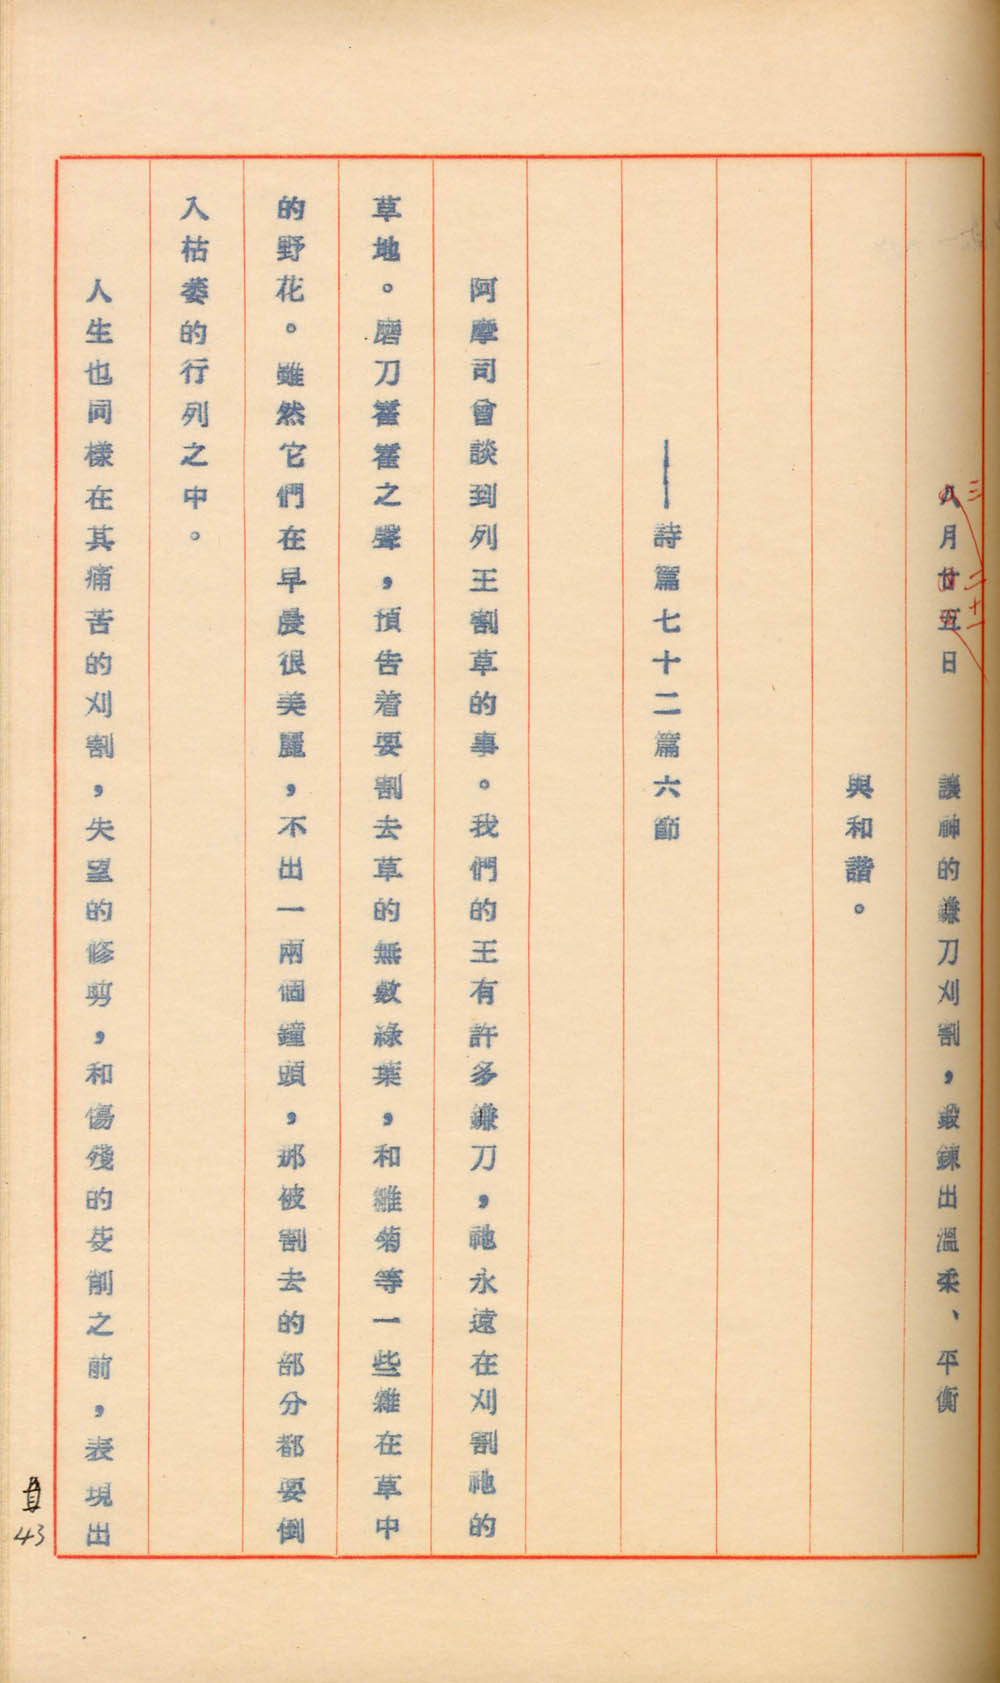 八月廿五日　讓神的鐮刀刈割，鍛鍊出溫柔、平衡
三
二十一
與和諧。
——詩篇七十二篇六節
阿摩司曾談到列王割草的事。我們的王有許多鐮刀，祂永遠在刈割祂的
草地。磨刀霍霍之聲，預告着要割去草的無數綠葉，和雛菊等一些雜在草中
的野花。雖然它們在早晨很美麗，不出一兩個鐘頭，那被割去的部分都要倒
入枯萎的行列之中。
人生也同樣在其痛苦的刈割，失望的修剪，和傷殘的芟削之前，表現出
43